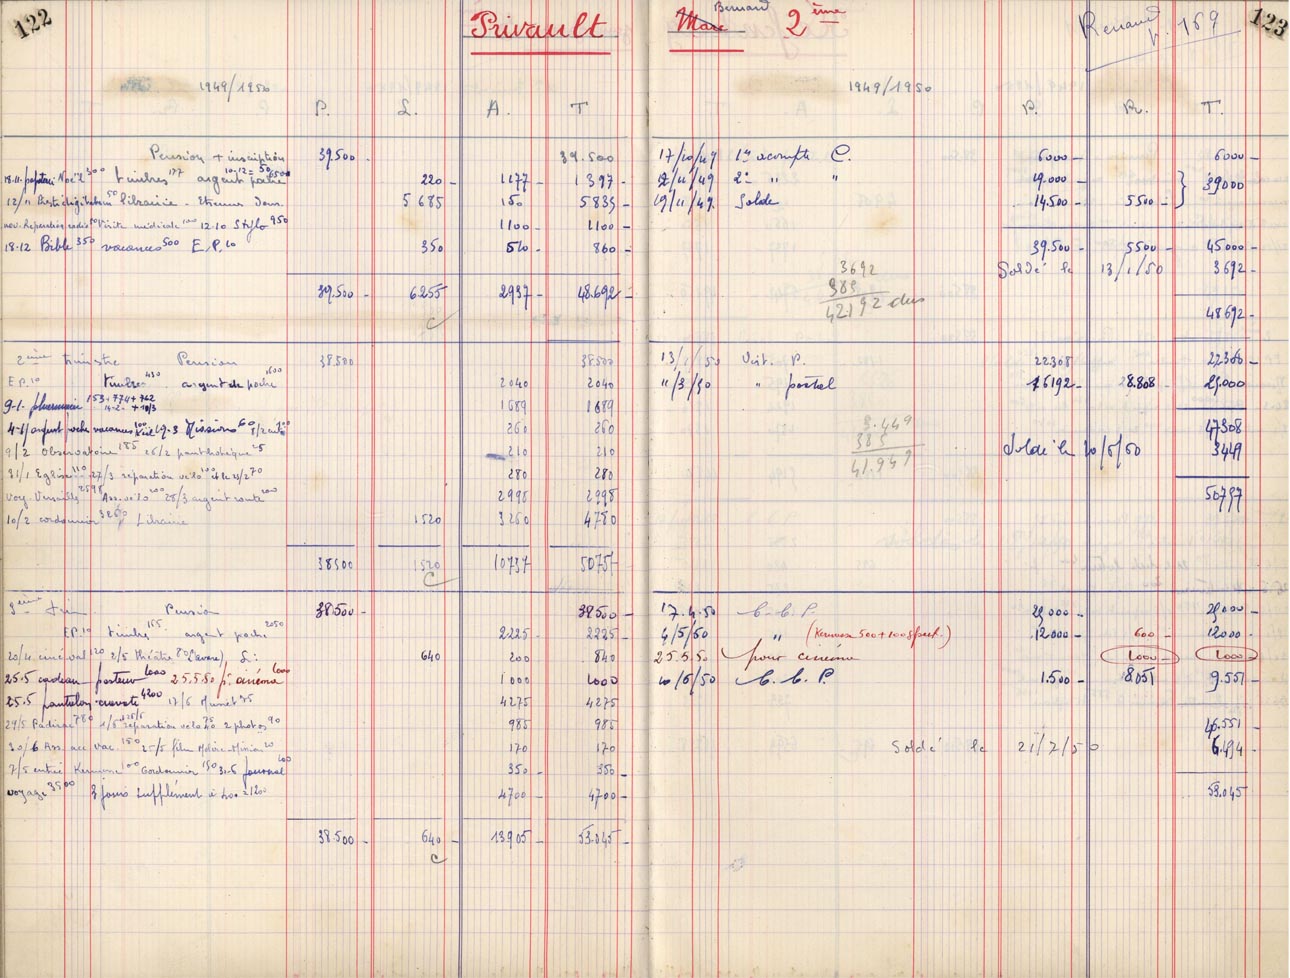 122
Privault
1949/1950
P. L. A. T
Pension + inscription 39.500 - 39.500
18.11. Noël 300 timbres 177 argent poche 220 - 1177 - 1397 -
12/11 Prestidigitation 50 librairie - 5685 150 5835 -
visite médicale 100 12-10 Stylo 950 1100 - 1100 -
18-12 Bible 350 vacances 500 E.P. 10 350 510 - 860 -
39.500 - 6255 - 2937 - 48.692 -
c
2ème trimestre Pension 38500 38500
E.P. 10 timbres 430 argent de poche 1600 2040 2040
9-1- pharmacie 153 + 774 + 762 1689 1689
14-2- + 10/3
4-1/ argent poche vacances 100 19.3 Missions 60 260 260
9/2 Observatoire 185 26/2 25 210 210
31/1 Eglise 110 27/3 réparation vélo 100 70 280 280
Voy. Versailles 2598 Ass. vélo 200 28/3 argent route 200 2998 2998
10/2 cordonnier 3260 Librairie 1520 3260 4780
38500 1520 10737 50757
c
3ème Pension 38.500 - 38500 -
E.P. 10 timbre 165 argent poche 2050 2225 - 2225 -
20/4 cinéval 120 2/5 théâtre 80 (l'avare) L: 640 200 840
25.5 cadeau pasteur 1000 25.5.50 pr. cinéma 1000 1000 1000
25.5 pantalon-cravate 4200 17/6 75 4275 4275
29/5 Padirac 780 1/6 réparation vélo 40 2 photos 90 985 985
30/6 Ass. acc vac. 150 25/5 film 20 170 170
7/5 entrée Kermesse 100 Cordonnier 150 31-6 journal 100 350 350 -
voyage 3500 3 jours supplément à 400 = 1200 4700 - 4700 -
38.500 - 640 - 13905 - 53.045 -
c
Marc Bernard 2ème
Renaud p. 169
123
1949/1950
P. R. T.
17/10/49 1er acompte C. 6000 - 6000 -
12/11/49 2e " " 19.000 -
19/11/49. Solde 14.500 - 5500 - } 39000
39.500 - 5500 - 45000 -
Soldé le 13/1/50 3.692 -
3692
385
42192 dus
48692 -
13/1/50 Virt. P. 22308 22308 -
11/3/50 " postal 16192 - 28.808 - 25.000
47308
3.449
385
41.949
Soldé le 10/5/50 3449
50757
17.4.50 C.C.P. 25000 - 25000 -
4/5/50 " (Kermesse 500 + 100 ) 12000 - 600 - 12000 -
25.5.50 pour cinéma 1000 - 1000 -
10/6/50 C.C.P. 1.500 - 8.051 9.551 -
46.551
Soldé le 21/7/50 6.494
53.045